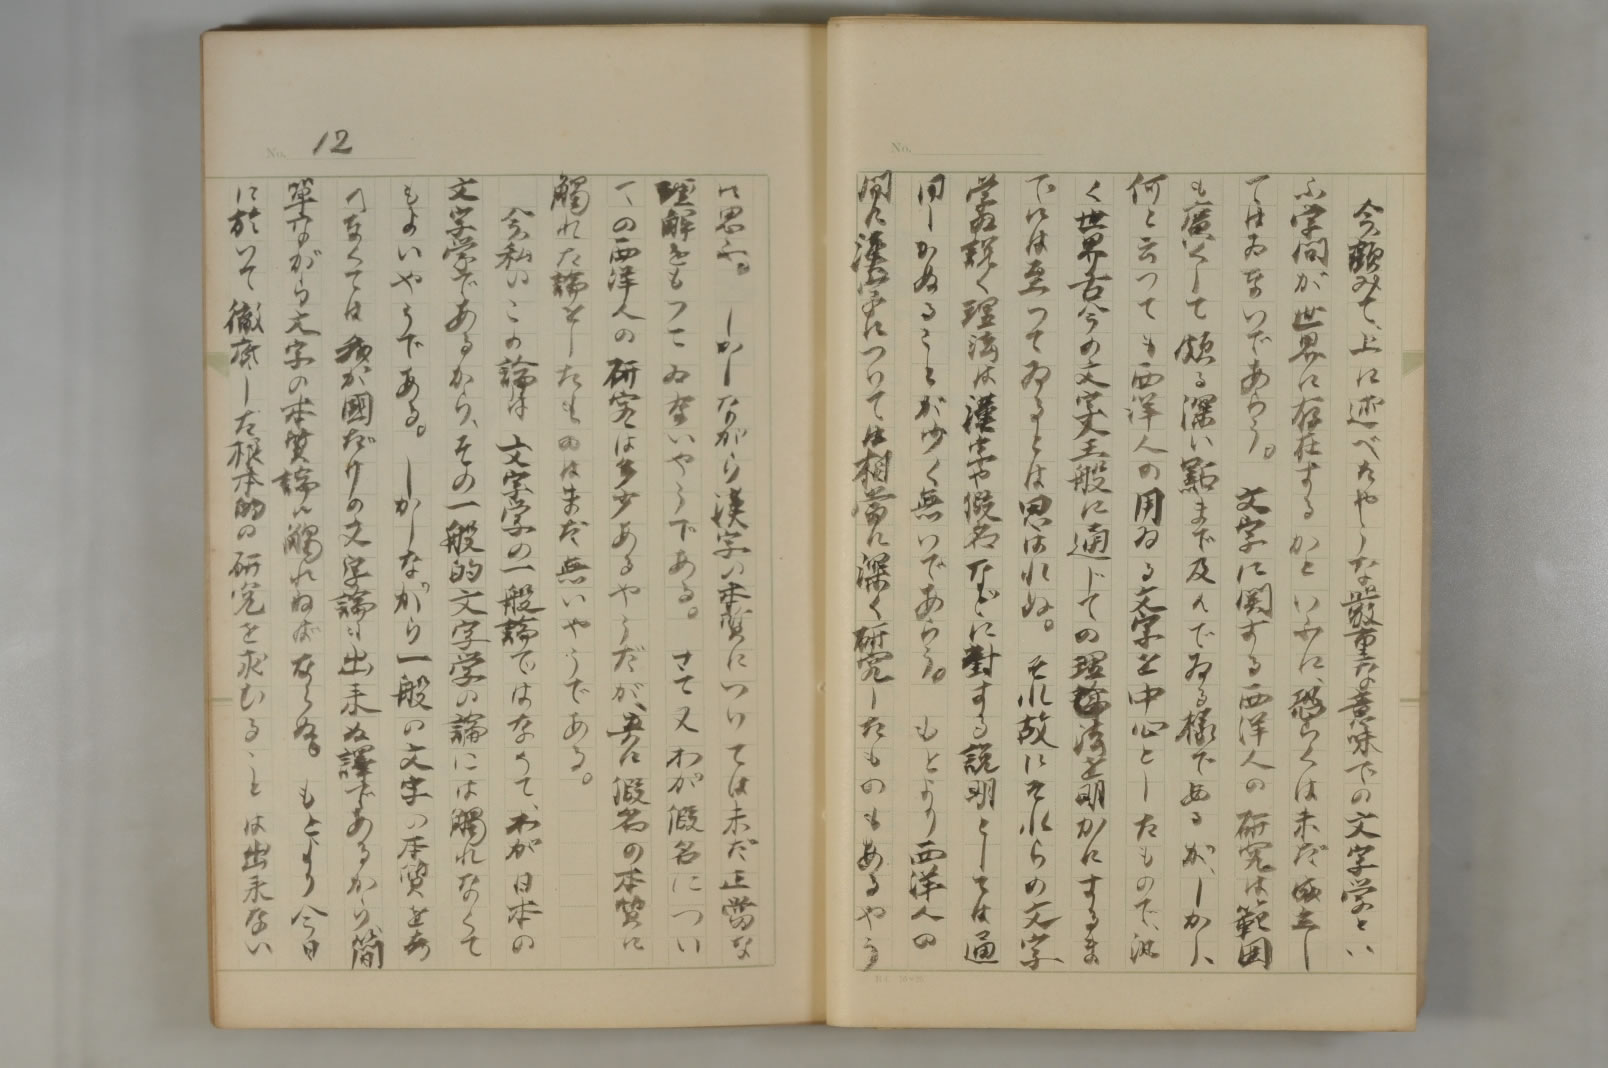 今顧みて、上に述べたやうな嚴重な意味での文字學とい
ふ学問が世界に存在するかといふに、恐らくは未だ成立し
てはゐまいであらう。文字に関する西洋人の研究は範囲
も廣くして頗る深い點まで及んでゐる樣であるが、しかし、
何と云つても西洋人の用ゐる文字を中心としたもので、汎
く世界古今の文字全般に通じての理法を明かにするま
でには至つてゐるとは思はれぬ。それ故にそれらの文字
学の説く理法は漢字や假名などに對する説明としては通
用しかぬることが少く無いであらう。もとより西洋人の
間に漢字については相當に深く研究したものもあるやう
No.
12
No.
に思ふ。しかしながら漢字の本質については未だ正當な
理解をもつてゐないやうである。さて又わが假名につい
ての西洋人の研究は多少あるやうだが、真に假名の本質に
觸れた論をしたものはまだ無いやうである。
今私のこの論は文字学の一般論ではなくて、わが日本の
文字学であるから、その一般的文字学の論には觸れなくて
もよいやうである。しかしながら一般の文字の本質をあ
へなくては我が國だけの文字論は出来ぬ譯であるから、簡
單ながら文字の本質論に觸れねばならぬ。もとより今日
に於いて徹底した根本的の研究を求むることは出来ない